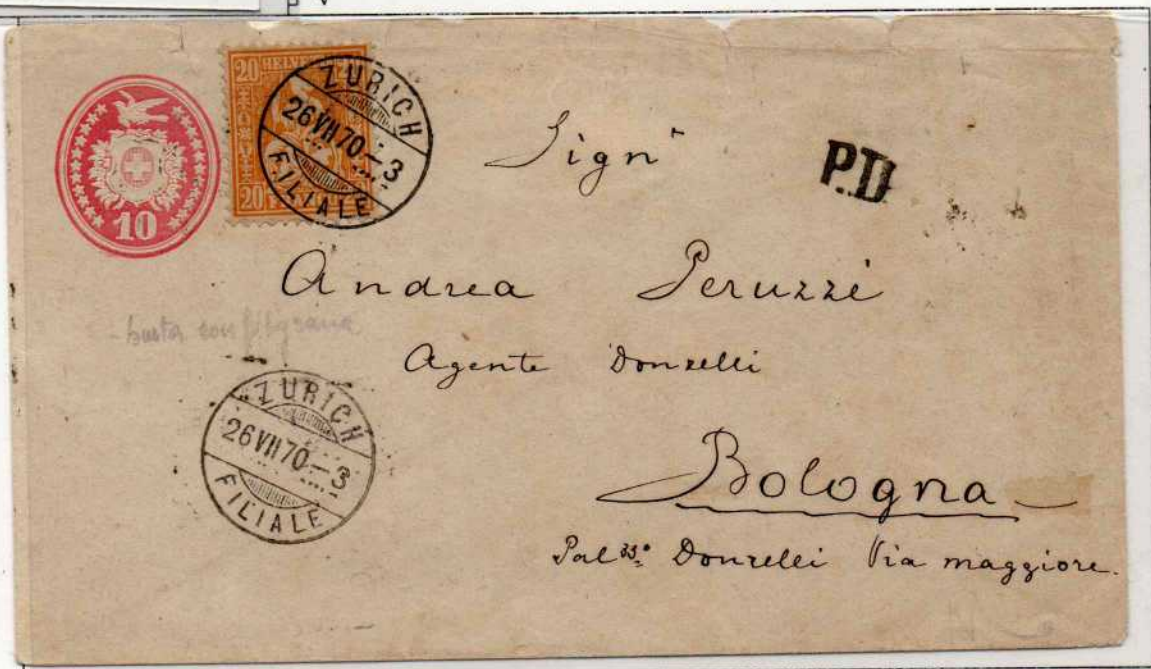 20 HELVE
20
10
ZURICH
26 VII 70 – 3
FILIALE
P.D.
Sign.r
Andrea Peruzzi
- busta con filigrana
Agente Donzelli
ZURICH
26 VII 70 – 3
FILIALE
Bologna
Pal.zzo Donzelli Via maggiore.